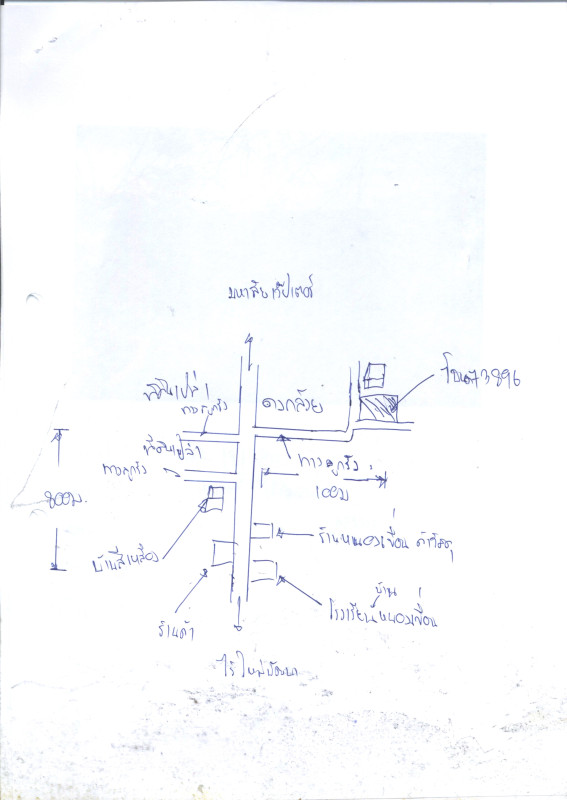 มหาสิงห์วีปเตอร์
โฉนด 73896
ที่ดินเปล่า
ทางลูกรัง
ดงกล้วย
ที่ดินเปล่า
ทางลูกรัง
ทางลูกรัง
100ม
800ม.
ร้านหนองเขื่อน ค้าวัสดุ
บ้านสีเหลือง
บ้าน
โรงเรียนหนองเขื่อน
ร้านค้า
ไร่ใหม่พัฒนา